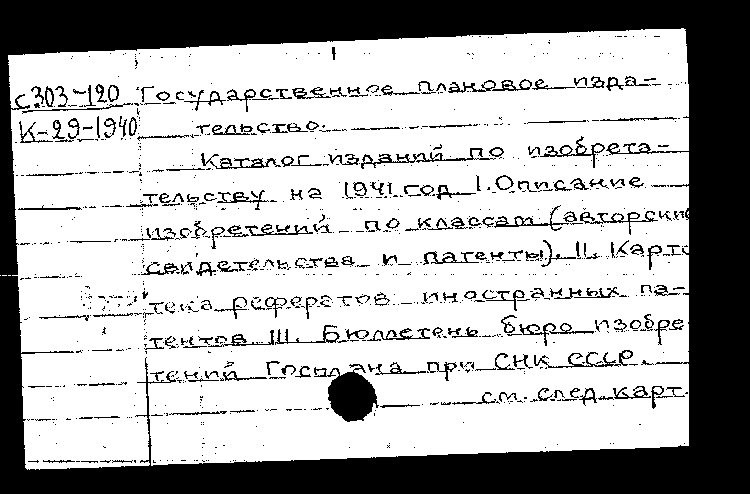 С303-120 Государственное плановое изда-
К-29-1940 тельство.
Каталог изданий по изобрета-
тельству на 1941 год. I. Описание
изобретений по классам (авторски
свидетельства и патенты). II. Карто
тека рефератов иностранных па-
тентов III. Бюллетень бюро изобре
тений Госплана при СНК СССР.
см. след. карт.